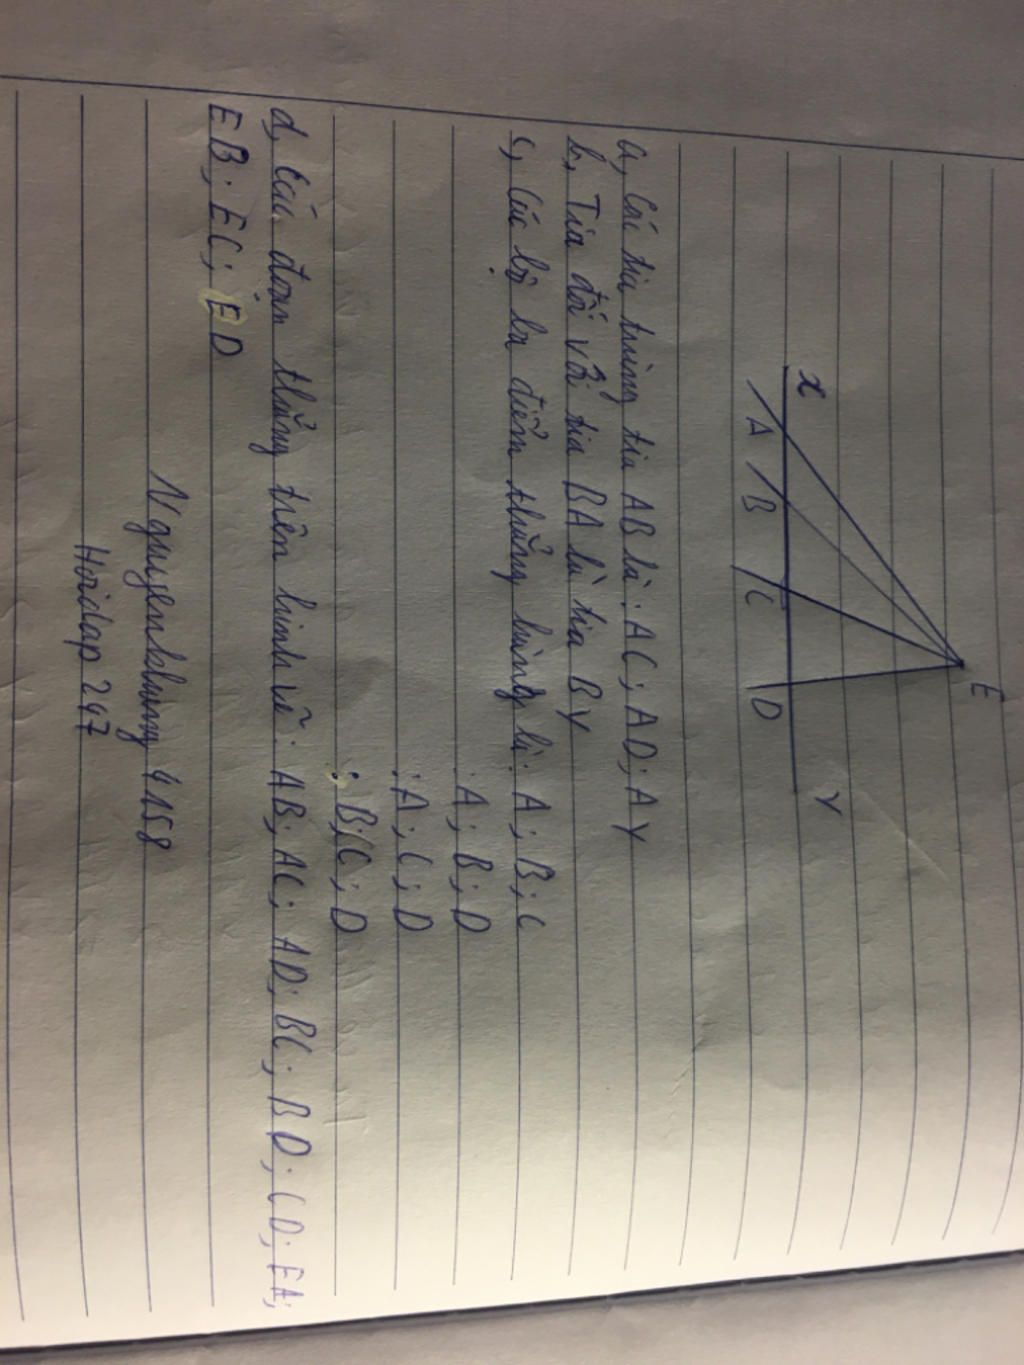 E
x
Y
A B C D
a, Các tia trùng tia AB là: AC; AD; AY
b, Tia đối với tia BA là tia BY
c, Các bộ ba điểm thẳng hàng là: A; B; C
: A; B; D
: A; C; D
: B; C; D
d, Các đoạn thẳng trên hình vẽ: AB; AC; AD; BC; BD; CD; EA;
EB; EC; ED
Nguyenkhung4158
Hoidap247